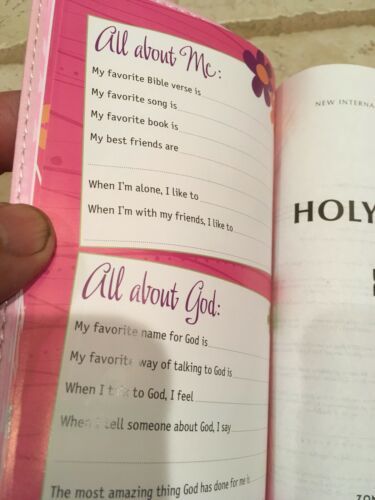 All about Me:
My favorite Bible verse is
My favorite song is
My favorite book is
My best friends are
When I'm alone, I like to
When I'm with my friends, I like to
All about God:
My favorite name for God is
My favorite way of talking to God is
When I talk to God, I feel
When I tell someone about God, I say
The most amazing thing God has done for me is
NEW INTERNA
HOLY
ZON